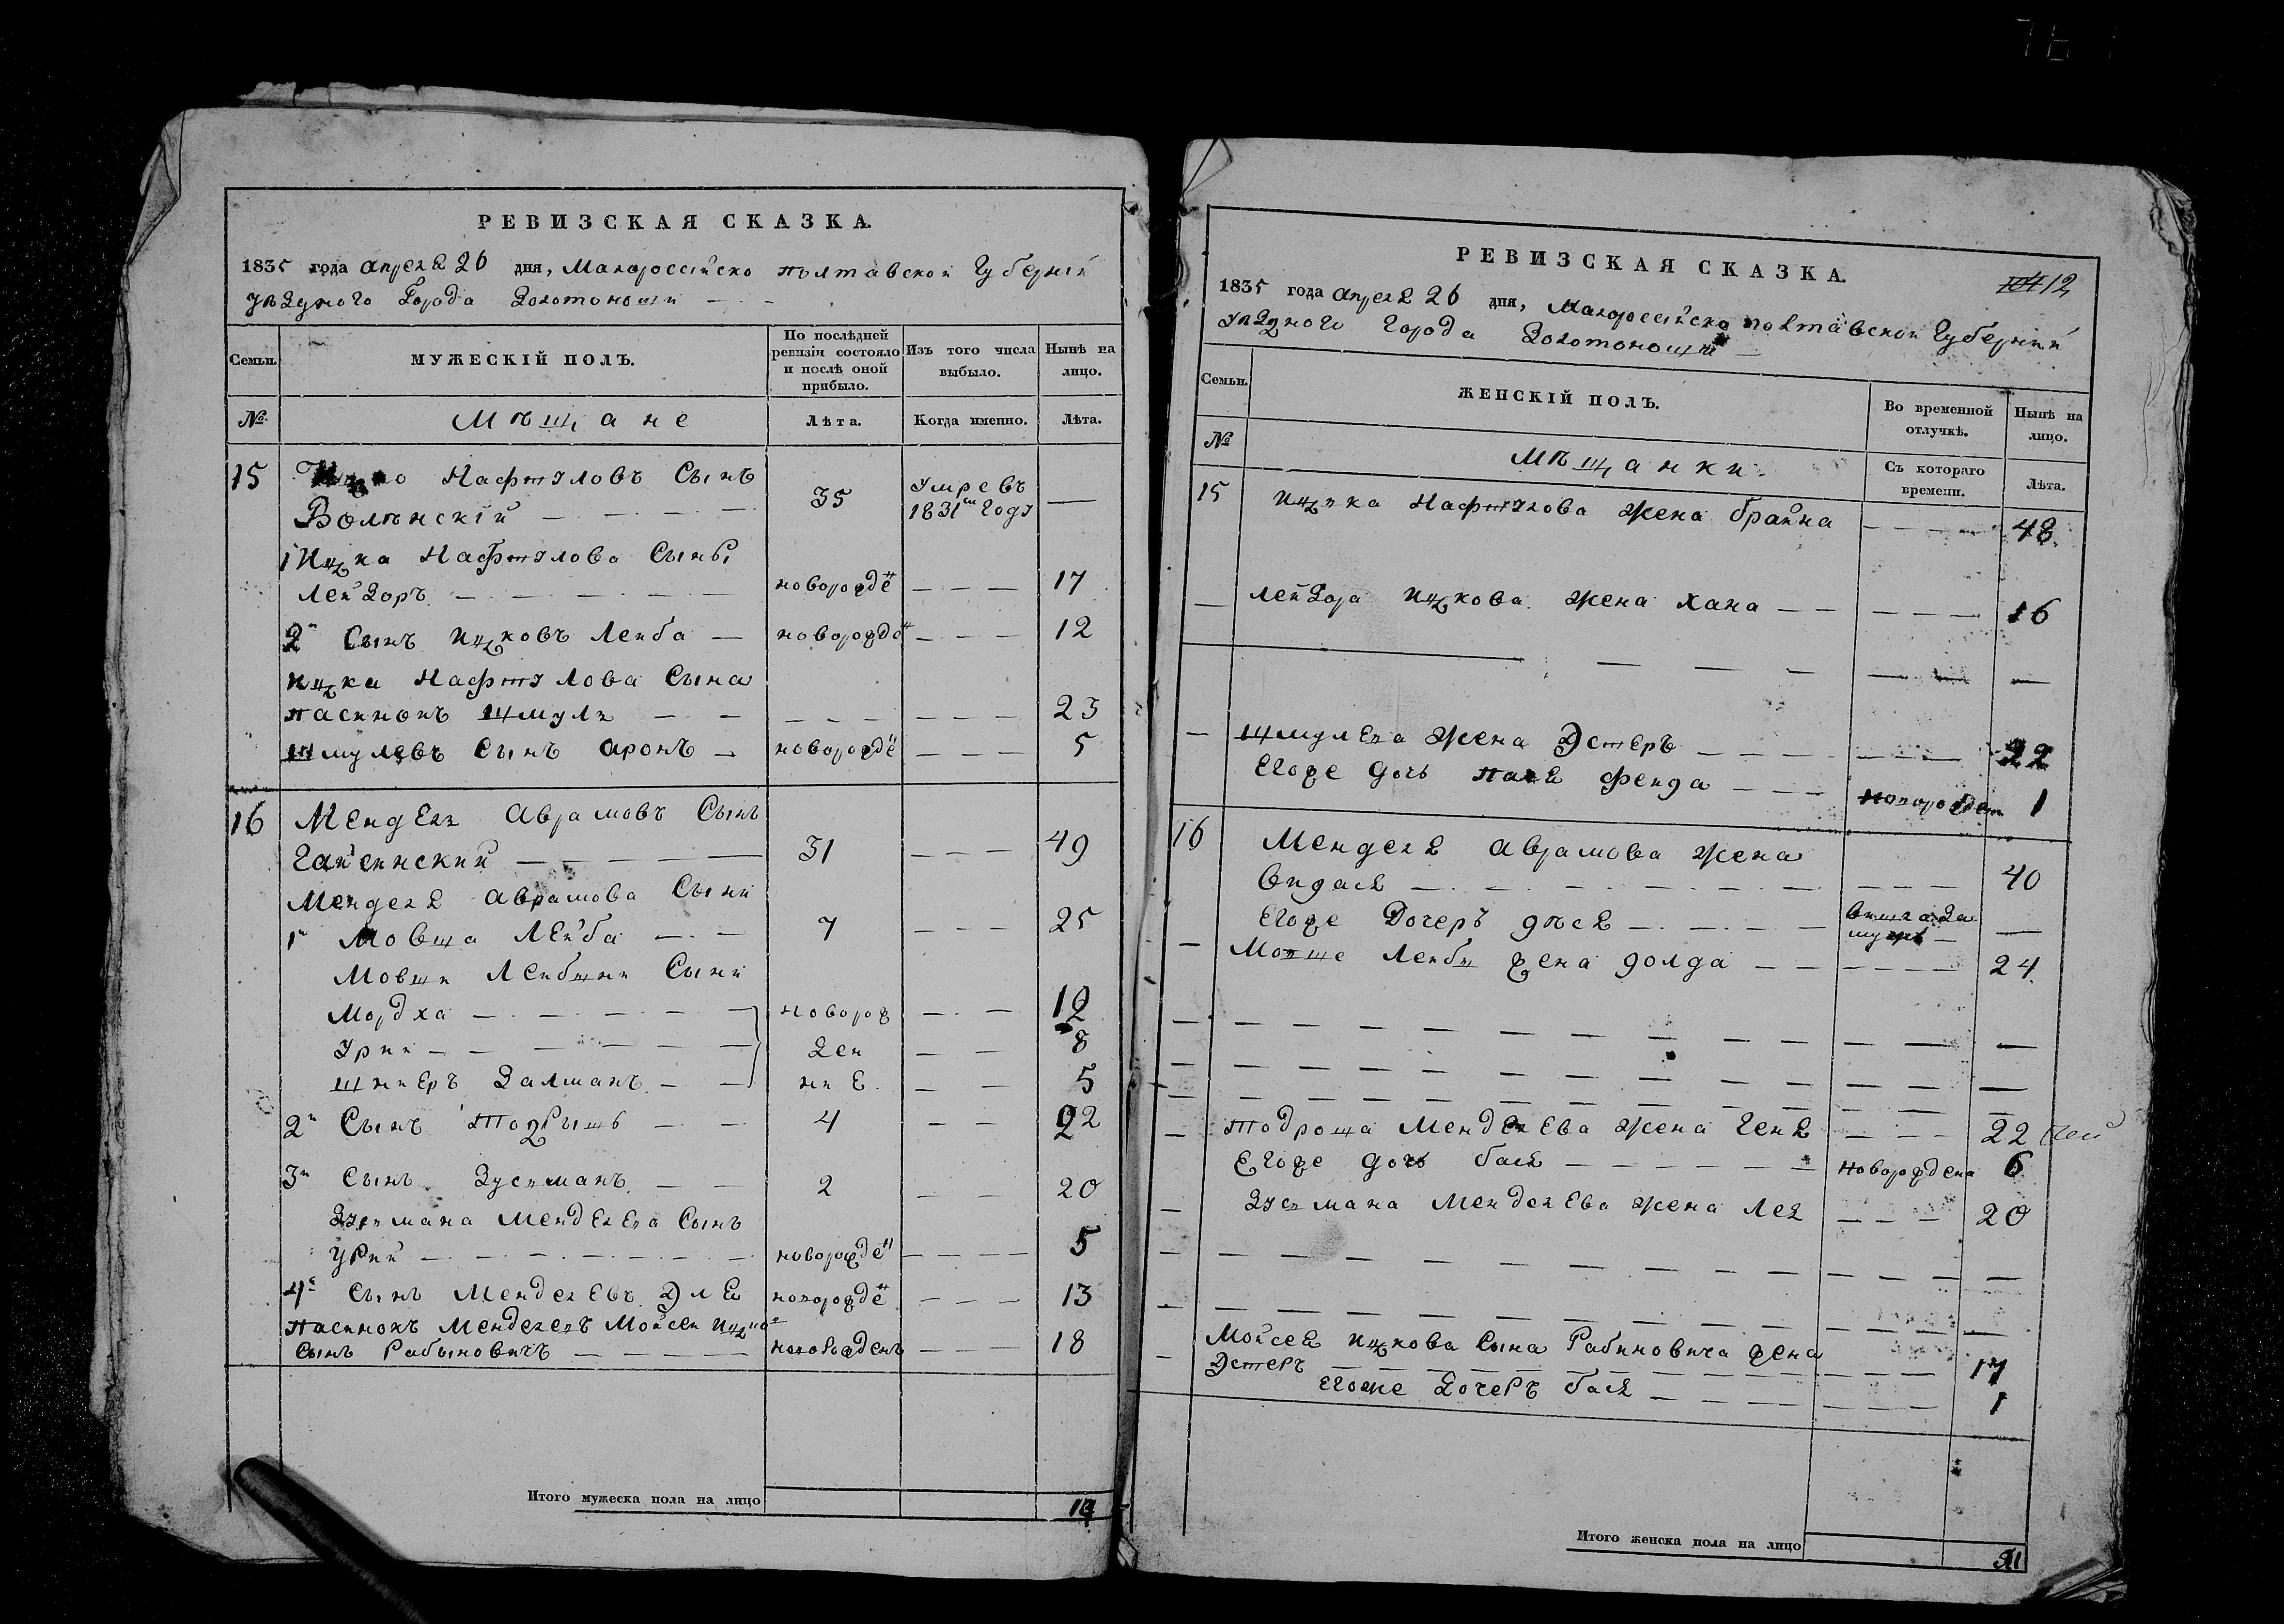 РЕВИЗСКАЯ СКАЗКА.
1835 года апреля 26 дня, Малоросейско полтавской Губерний
уездного Города Золотоноши
Семьи.
МУЖЕСКІЙ ПОЛЪ.
По послѣдней ревизіи состояло и послѣ оной прибыло.
Изъ того числа выбыло.
Нынѣ на лицо.
№.
Мѣщане
Лѣта.
Когда именно.
Лѣта.
15 Нафтуловъ Сынъ
Волынскій 35 Умре въ 1831м году
1 Ицка Нафтулова Сынъ
Лейзоръ новорожде 17
2й Сынъ Ицковъ Лейба новорожде 12
Ицка Нафтулова Сына
пасинокъ Шмуль 23
Шмулевъ Сынъ Аронъ новорожде 5
16 Мендель Аврамовъ Сынъ
Гайсинский 31 49
Менделя Аврамова Сыни
1й Мовша Лейба 7 25
Мовши Лейбини Сыни
Мордха новорож 10
Урии ден 8
Шнееръ Залманъ ние 5
2й Сынъ Тодрышь 4 22
3й Сынъ Зусьманъ 2 20
Зусьмана Менделева Сынъ
Урии новорожде 5
4й Сынъ Менделевъ Эля новорожде 13
Пасинокъ Менделевъ Мойсеи Ицков
Сынъ Рабыновичъ новорожденъ 18
Итого мужеска пола на лицо
РЕВИЗСКАЯ СКАЗКА.
12
1835 года апреля 26 дня, Малоросейско полтавской Губерний
уездного Города Золотоноши
Семьи.
ЖЕНСКІЙ ПОЛЪ.
Во временной отлучкѣ.
Нынѣ на лицо.
№
Мѣщанки
Съ котораго времени.
Лѣта.
15 Ицька Нафтулова Жена Брайна 48
Лейзора Ицкова Жена Хана 16
Шмулева Жена Эстеръ 22
Егоже Дочь Пая Фейда новорожден 1
16 Менделя Аврамова Жена
Видася 40
Егоже Дочеръ Двся вишла за мужъ
Мовше Лейби жена Долда 24
Тодроша Менделева Жена Геня 22
Егоже дочь Бася новорождена 6
Зусьмана Менделева Жена Лея 20
Мойсея Ицкова Сына Рабиновича жена
Эстеръ 17
Егоже Дочеръ Бася 1
Итого женска пола на лицо